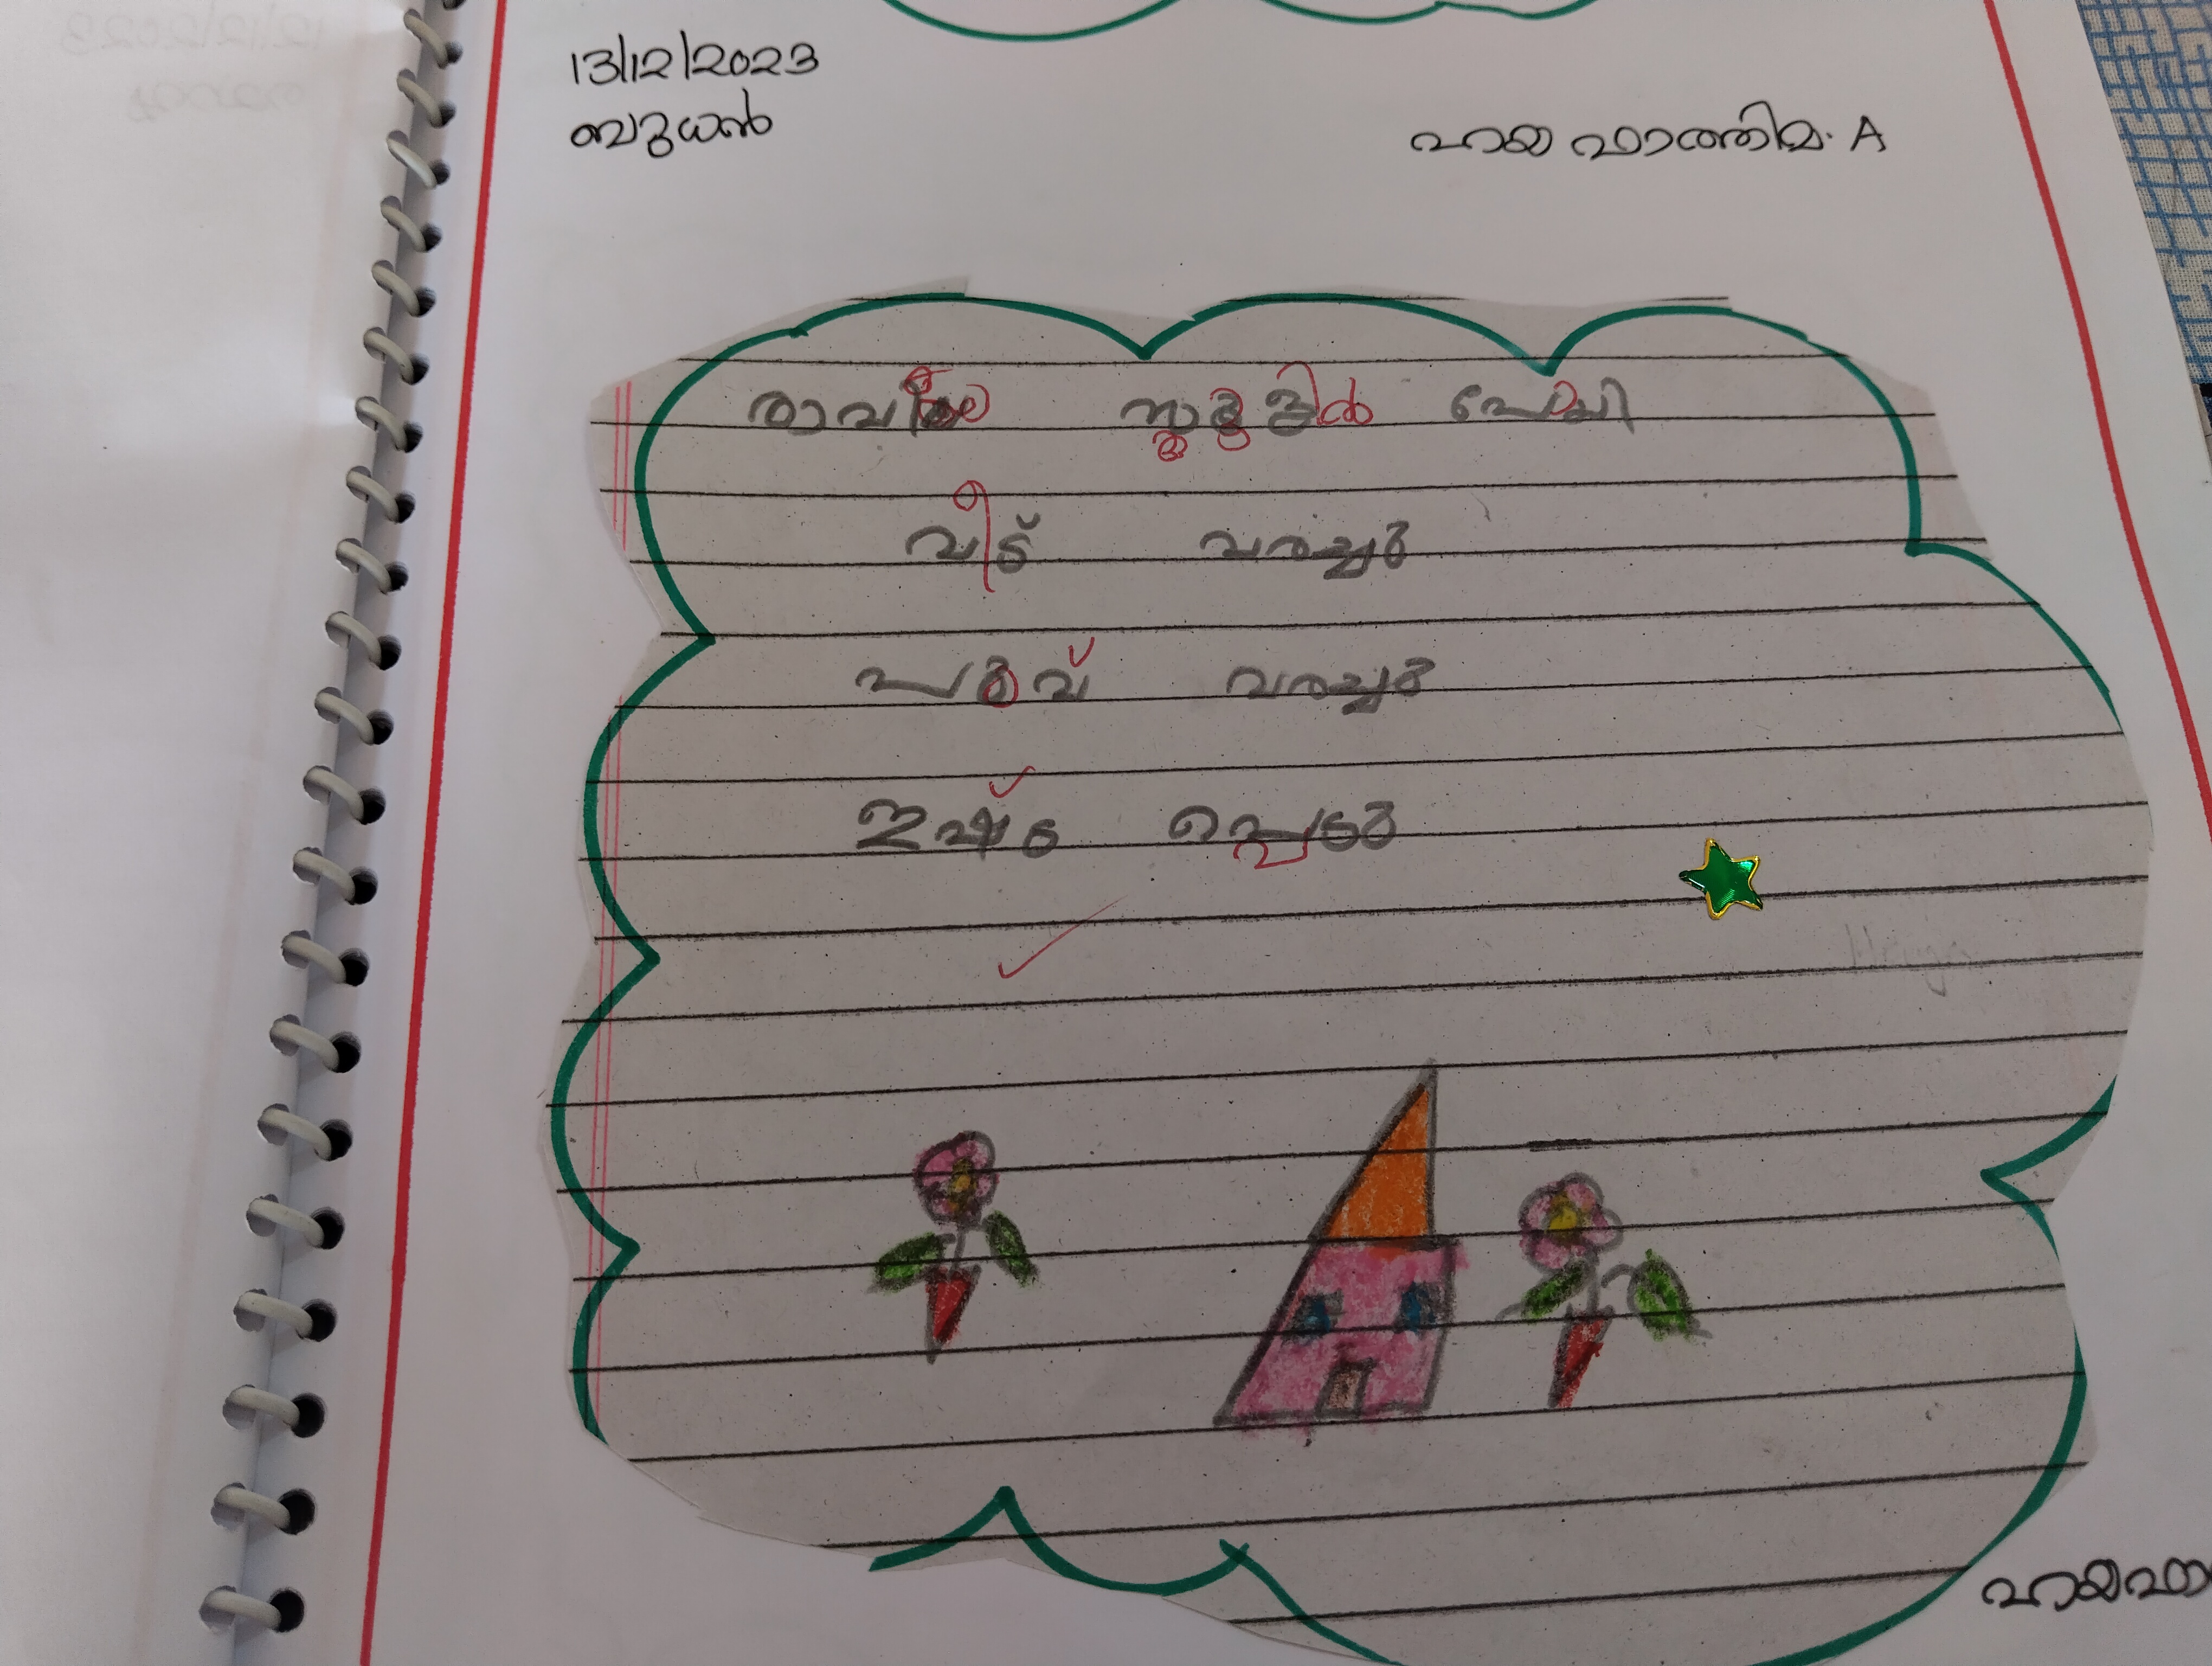 13/12/2023
ബുധൻ
ഹയ ഫാത്തിമ. A
രാവിലെ സ്കൂളിൽ പോയി
വീട് വരച്ചു
പൂവ് വരച്ചു
ഇഷ്ട പ്പെട്ടു
Haya
ഹയഫാ